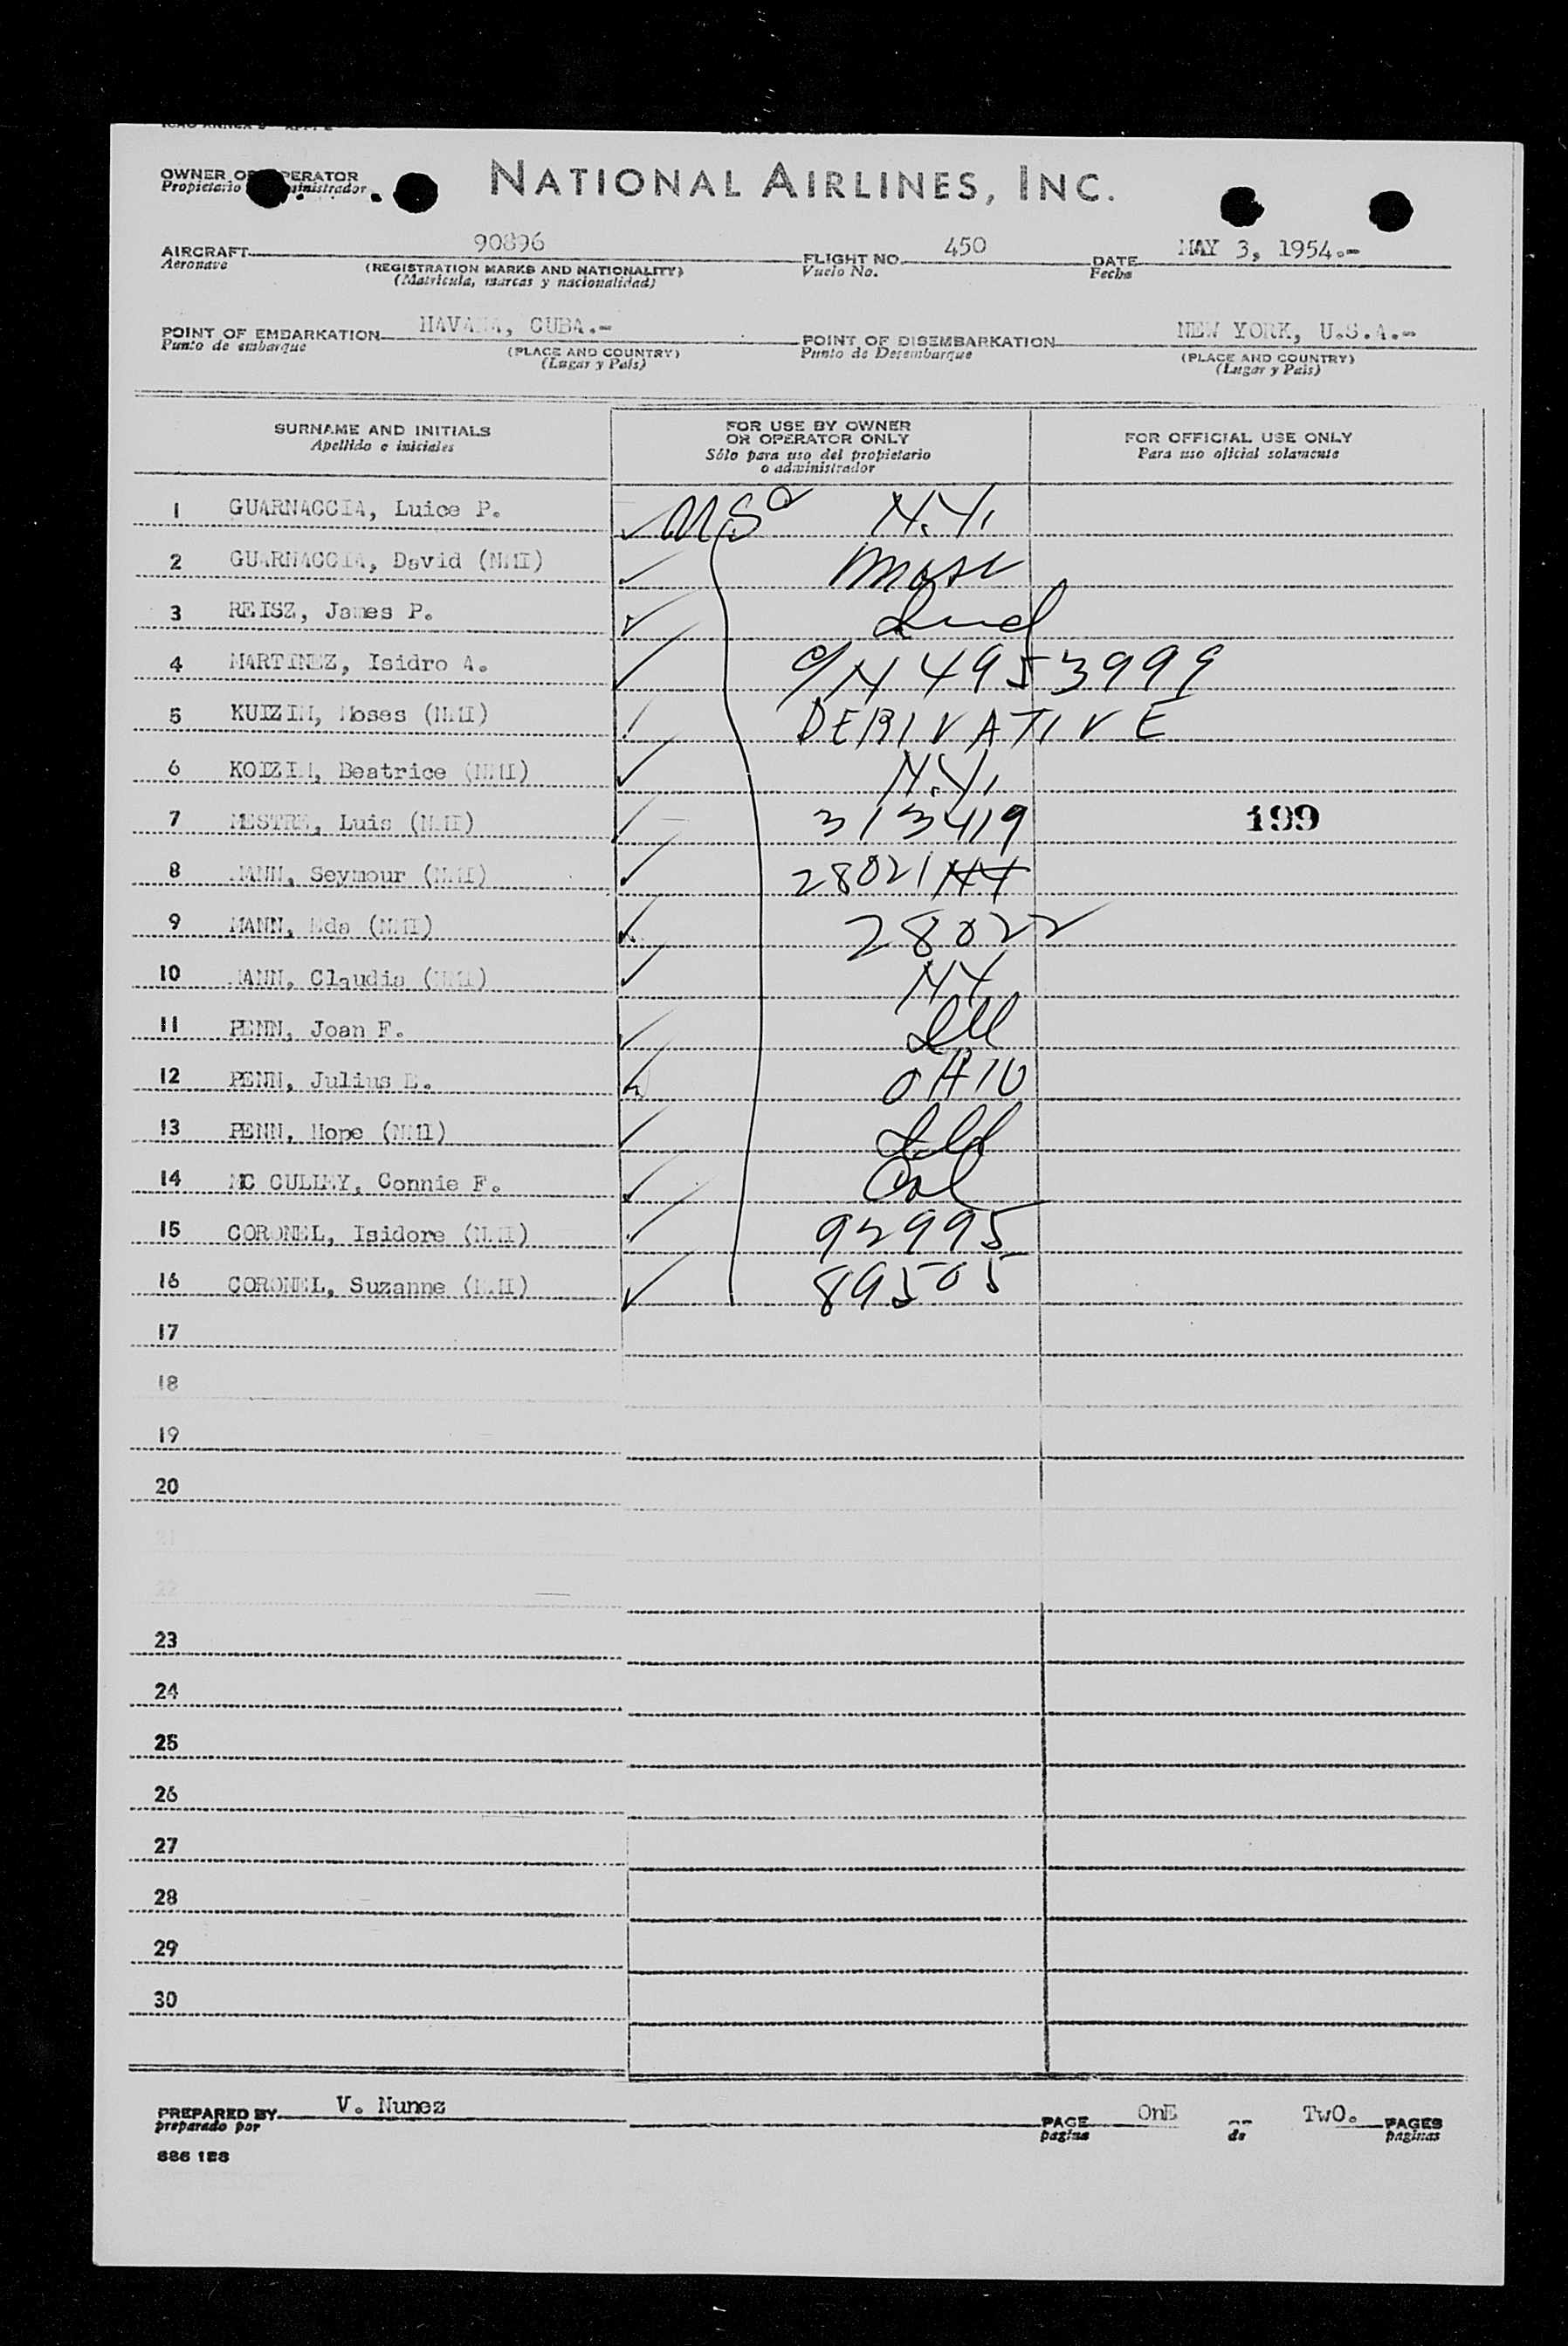 OWNER OR OPERATOR
Propietario administrador
NATIONAL AIRLINES, INC.
AIRCRAFT 90896 FLIGHT NO. 450 DATE MAY 3, 1954.-
Aeronave (REGISTRATION MARKS AND NATIONALITY) Vuelo No. Fecha
(Matricula, marcas y nacionalidad)
POINT OF EMBARKATION HAVANA, CUBA.- POINT OF DISEMBARKATION NEW YORK, U.S.A.-
Punto de embarque (PLACE AND COUNTRY) Punto de Desembarque (PLACE AND COUNTRY)
(Lugar y Pais) (Lugar y Pais)
SURNAME AND INITIALS
Apellido e iniciales
FOR USE BY OWNER
OR OPERATOR ONLY
Sólo para uso del propietario
o administrador
FOR OFFICIAL USE ONLY
Para uso oficial solamente
1 GUARNACCIA, Luice P. US N.Y.
2 GUARNACCIA, David (NMI) Mass
3 REISZ, James P. Ind
4 MARTINEZ, Isidro A. C/N 4953999
5 KUIZIN, Moses (NMI) DERIVATIVE
6 KOIZIN, Beatrice (NMI) N.Y.
7 MESTRE, Luis (NMI) 313419 199
8 MANN, Seymour (NMI) 28021 NY
9 MANN, Eda (NMI) 28022
10 MANN, Claudia (NMI) NY
11 PENN, Joan F. Ill
12 PENN, Julius E. OHIO
13 PENN, Hope (NMI) Ill
14 MC CULLEY, Connie F. Cal
15 CORONEL, Isidore (NMI) 92995
16 CORONEL, Suzanne (NMI) 89505
17
18
19
20
21
22
23
24
25
26
27
28
29
30
PREPARED BY V. Nunez PAGE OnE TwO. PAGES
preparado por pagina de paginas
886 188